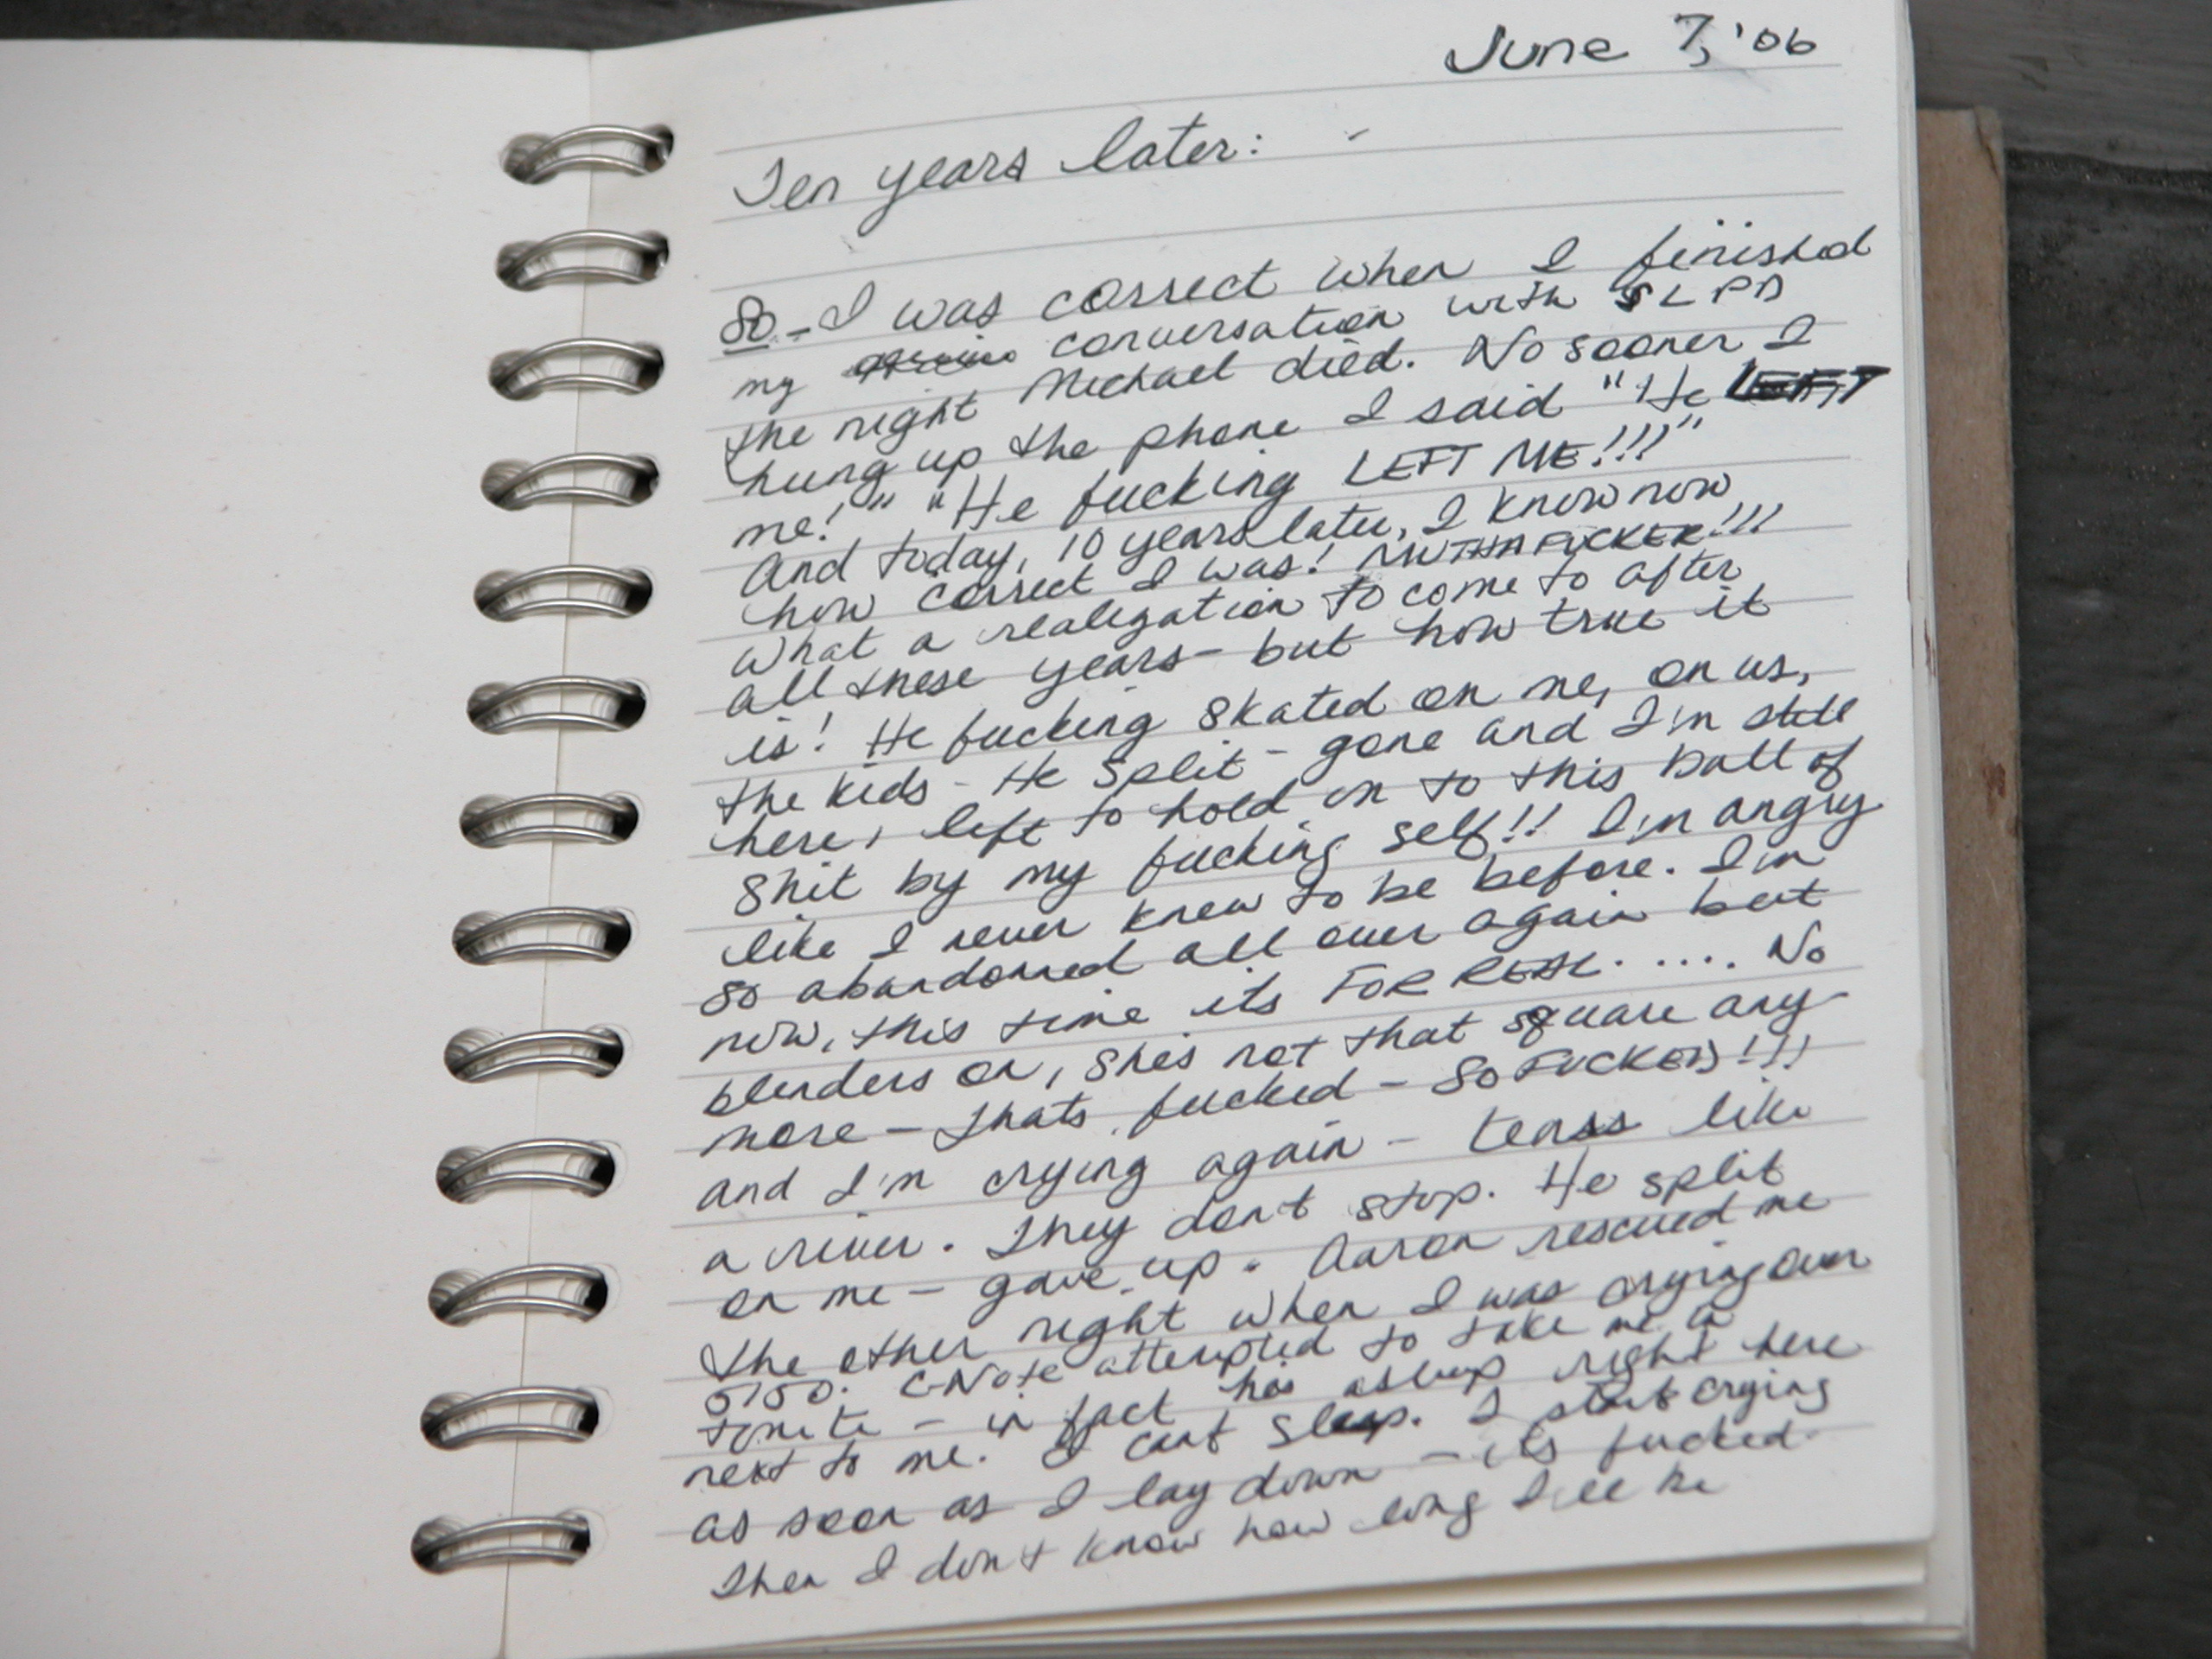 June 7, '06
Ten years later:
So - I was correct when I finished
my conversation with SLPD
the night Michael died. No sooner I
hung up the phone I said "He LEFT
me!" "He fucking LEFT ME!!!"
And today, 10 years later, I know now
how correct I was! MUTHAFUCKER!!!
What a realization to come to after
all these years - but how true it
is! He fucking skated on me, on us,
the kids - He split - gone and I'm still
here, left to hold on to this ball of
shit by my fucking self!! I'm angry
like I never knew to be before. I'm
so abandoned all over again but
now, this time its FOR REAL..... No
blenders on, shes not that square any-
more - Thats fucked - So FUCKED!!!
and I'm crying again - tears like
a river. They dont stop. He split
on me - gave up. Aaron rescued me
the other night when I was crying over
5150. C-Note attempted to take me a
tonite - in fact his asleep right here
next to me. I cant sleep. I start crying
as soon as I lay down - its fucked.
Then I don't know how long I'll be